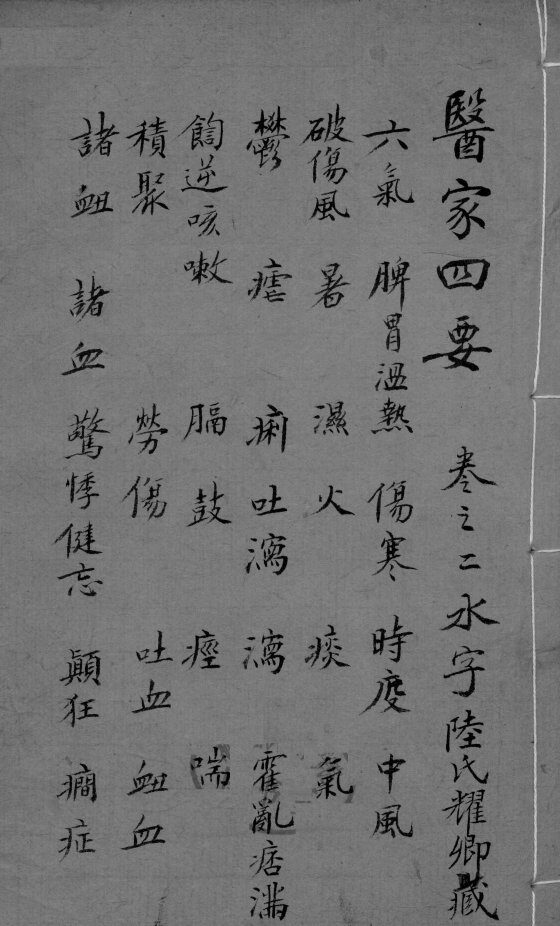 醫家四要 卷之二 水字 陸氏耀卿藏
六氣 脾胃溫熱 傷寒 時疫 中風
破傷風 暑 濕 火 痰 氣
鬱 瘧 痢 吐瀉 瀉 霍亂 痞滿
飽逆咳嗽 膈 鼓 痙 喘
積聚 勞傷 吐血 衄血
諸衄 諸血 驚悸健忘 顛狂 癇症